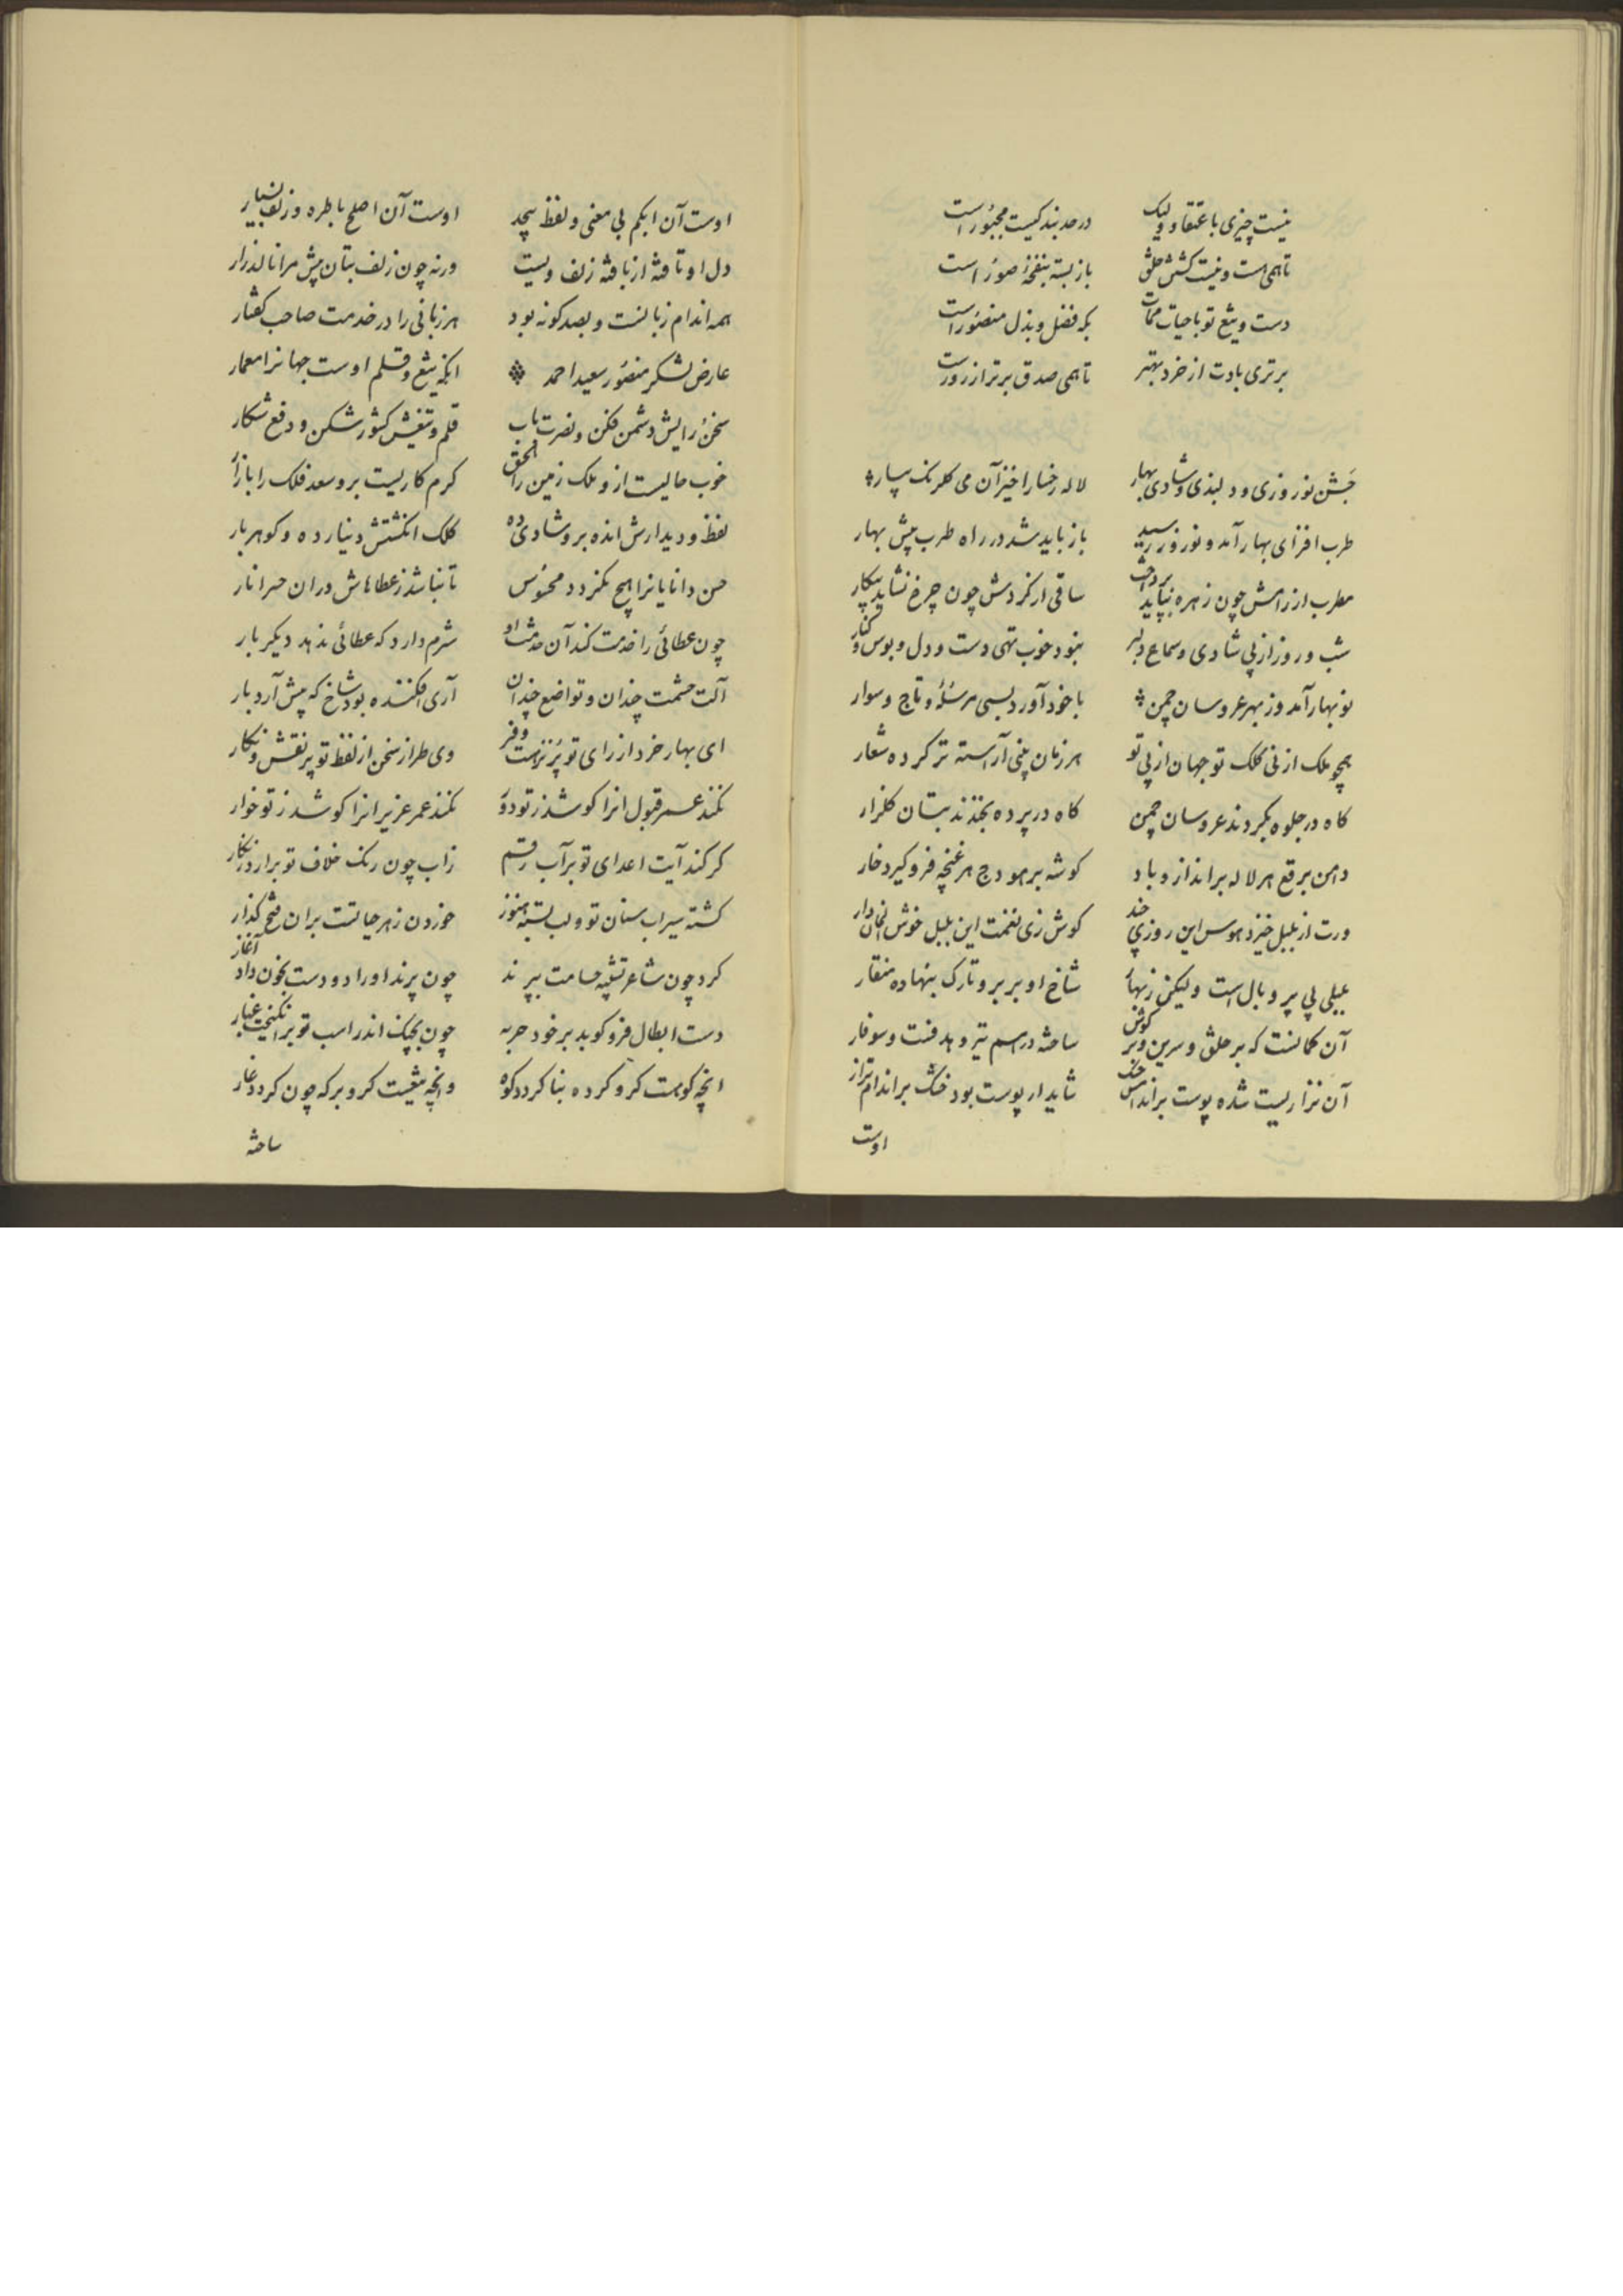 نیست چیزی باعتقاد ولیک در حد بند کیست مجبور است
تا همی هست و نیست کشش خلق باز بسته بنفخهٔ صور است
دست و تیغ تو با حیات ممات بکه فضل و بذل منصور است
برتری بادت از خرد بهتر تا همی صدق برتر از زور است
جشن نوروزی و دلبندی و شادی بهار لاله رخسارا خیز آن می کلرنک بیار
طرب افزای بهار آمد و نوروز رسید باز باید شد در راه طرب پیش بهار
مطرب از رامش چون زهره بباید برداشت ساقی ار کردش چون چرخ نشاید بیکار
شب و روز از پی شادی و سماع دلبر نبود خوب تهی دست و دل و بوس و کنار
نو بهار آمد وز بهر عروسان چمن با خود آورد بسی مرسله و تاج و سوار
همچو ملک از نی کلک تو جهان از پی تو هر زمان بینی آراسته تر کرده شعار
کاه در جلوه بکردند عروسان چمن کاه در پرده بخندند بتان کلزار
دامن برقع هر لاله براندازد باد کوشه بر هودج هر غنچه فرو کیرد خار
ورت از بلبل خیزد هوس این روزی چند کوش زی نغمت این بلبل خوش الحان دار
بلبلی بی پر و بال است ولیکن زنهار شاخ او بر بر و تارک بنهاده منقار
آن کمانست که بر حلق و سرین و بر کوش ساخته در اسم تیر و هدفست و سوفار
آن نزاریست شده پوست بر اندامش خشک شاید ار پوست بود خشک بر اندام نزار
اوست
اوست آن ابکم بی معنی و لفظ بیحد اوست آن اصلع با طره و زلف بسیار
دل او تافته از بافته زلف ولیست ورنه چون زلف بتان پیش مرانا لذ زار
همه اندام زبانست و بصد کونه بود هر زبانی را در خدمت صاحب کفتار
عارض لشکر منصور سعید احمد انکه تیغ و قلم اوست جهانرا معمار
سخن رایش دشمن فکن و نصرت یاب قلم و تیغش کشور شکن و دفع شکار
خوب حالیست ازو ملک زمین را الحق کرم کاریست برو سعد فلک را بازار
لفظ و دیدارش انده بر و شادی ده کلک انکشتش دینار ده و کوهر بار
حسن دانایانرا هیچ نکردد محسوس تا نباشد ز عطاهاش دران حسرا نار
چون عطائی را خدمت کند آن خدمت او شرم دارد که عطائی ندهد دیکر بار
آلت حشمت چندان و تواضع چندان آری افکنده بود شاخ که پیش آرد بار
ای بهار خرد از رای تو پر نزهت و فر وی طراز سخن از لفظ تو پر نقش و نکار
نکند عمر قبول انرا کو شد ز تو دور نکند عمر عزیز انرا کو شد ز تو خوار
کر کند آیت اعدای تو بر آب رقم زاب چون رنک خلاف تو برآرد زنکار
کشته سیراب سنان تو و لب بسته هنوز خوردن زهر حیاتست بران فتح کذار
کرد چون شاعر تشبیه حسامت بپرند چون پرند او را دو دست بخون داد آغاز
دست ابطال فرو کوبد بر خود حربه چون بچپک اندر اسب تو برانکیخت غبار
انچه کوهست کر و کرده بنا کردد کوه وانچه تیغیست کر و برکه چون کردد غار
ساخته